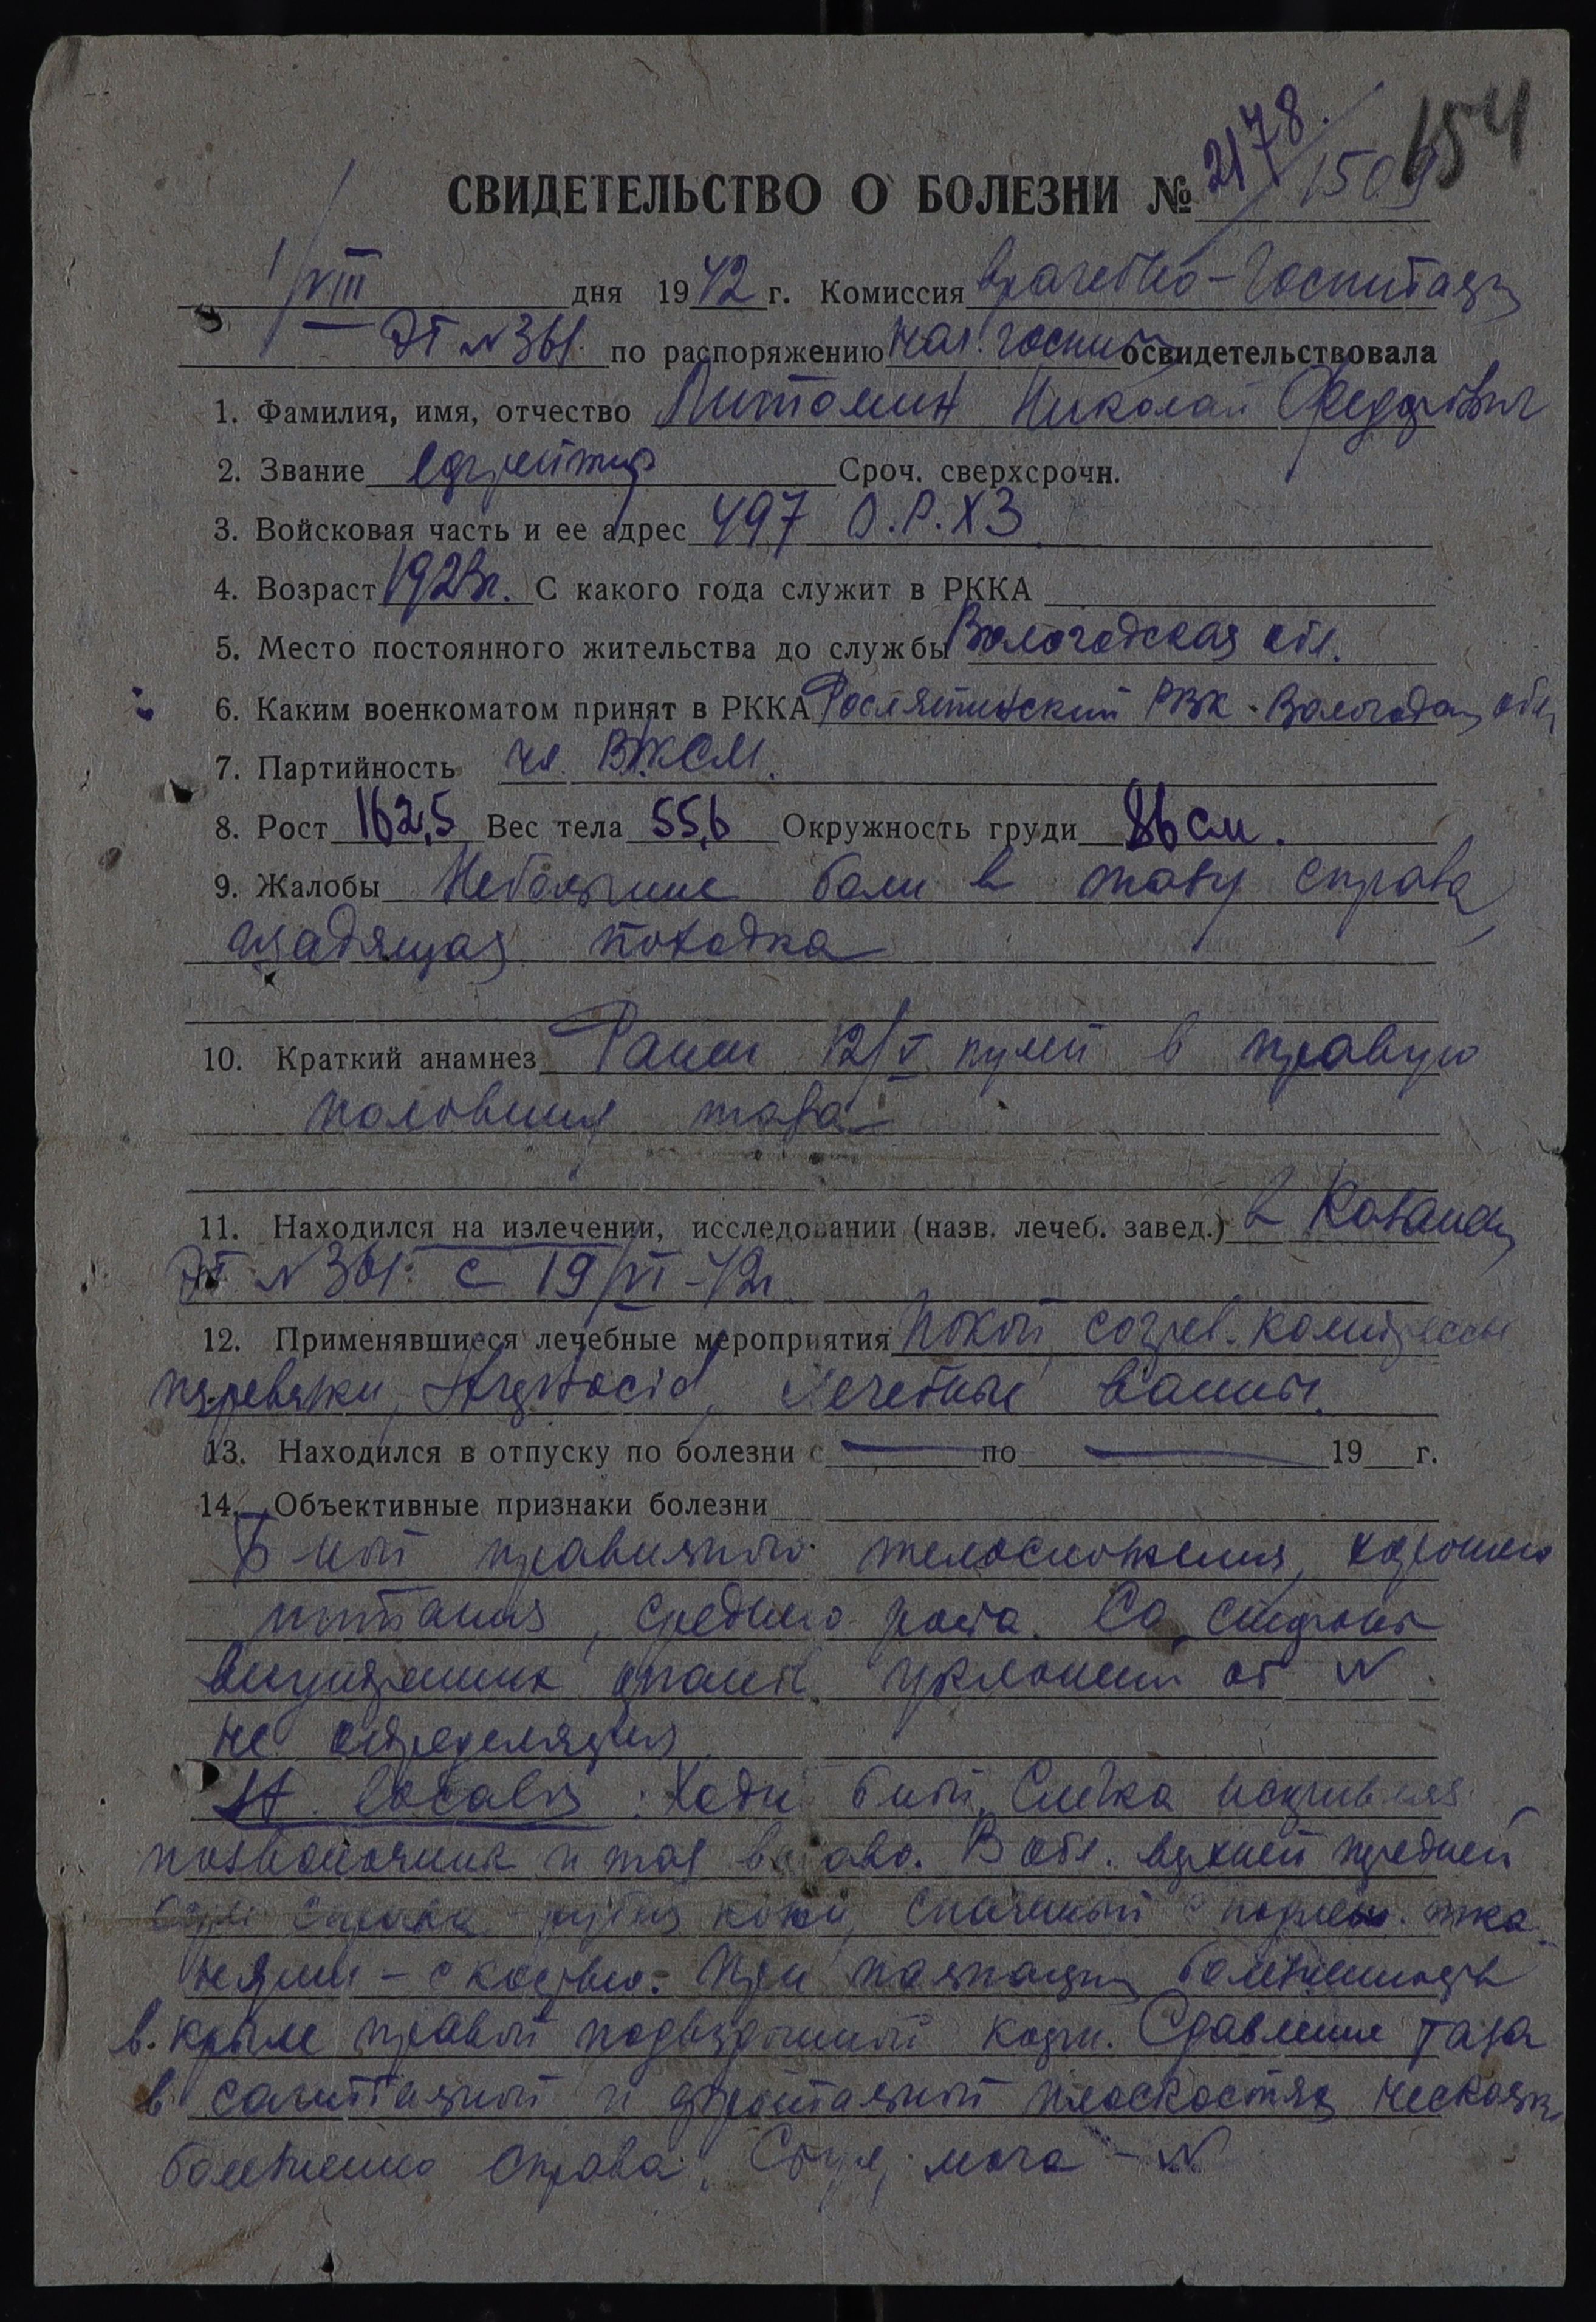 154
2178/1509
СВИДЕТЕЛЬСТВО О БОЛЕЗНИ №
1/VIII дня 1942 г. Комиссия врачебно-госпиталь
ЭГ №361 по распоряжению нач. госпит освидетельствовала
1. Фамилия, имя, отчество Питомин Николай Федорович
2. Звание ефрейтор Сроч. сверхсрочн.
3. Войсковая часть и ее адрес 497 О.Р.ХЗ
4. Возраст 1923г. С какого года служит в РККА
5. Место постоянного жительства до службы Вологодская обл.
6. Каким военкоматом принят в РККА Рослятинский РВК. Вологодск обл
7. Партийность чл. ВЛКСМ.
8. Рост 162,5 Вес тела 55,6 Окружность груди 86 см.
9. Жалобы Небольшие боли в тазу справа,
щадящая походка
10. Краткий анамнез Ранен 12/V пулей в правую
половину таза
11. Находился на излечении, исследовании (назв. лечеб. завед.) в Казани
ЭГ №361 с 19/VI-42г
12. Применявшиеся лечебные мероприятия Покой, согрев. компрессы
перевязки, лечебные ванны.
13. Находился в отпуску по болезни с — по — 19 г.
14. Объективные признаки болезни
Б-ной правильного телосложения, хорошего
питания, среднего роста. Со стороны
внутренних органов уклонений от N
не определяется
St. localis: б-ной, слегка искривляя
позвоночник и таз вправо. В обл. верхней передней
справа рубец кожи, спаянный с тка-
нями - с костью. При пальпации болезненность
в крыле правой подвздошной кости. Сдавление таза
в сагиттальной и фронтальной плоскостях несколько
болезненно справа. Стул, моча - N